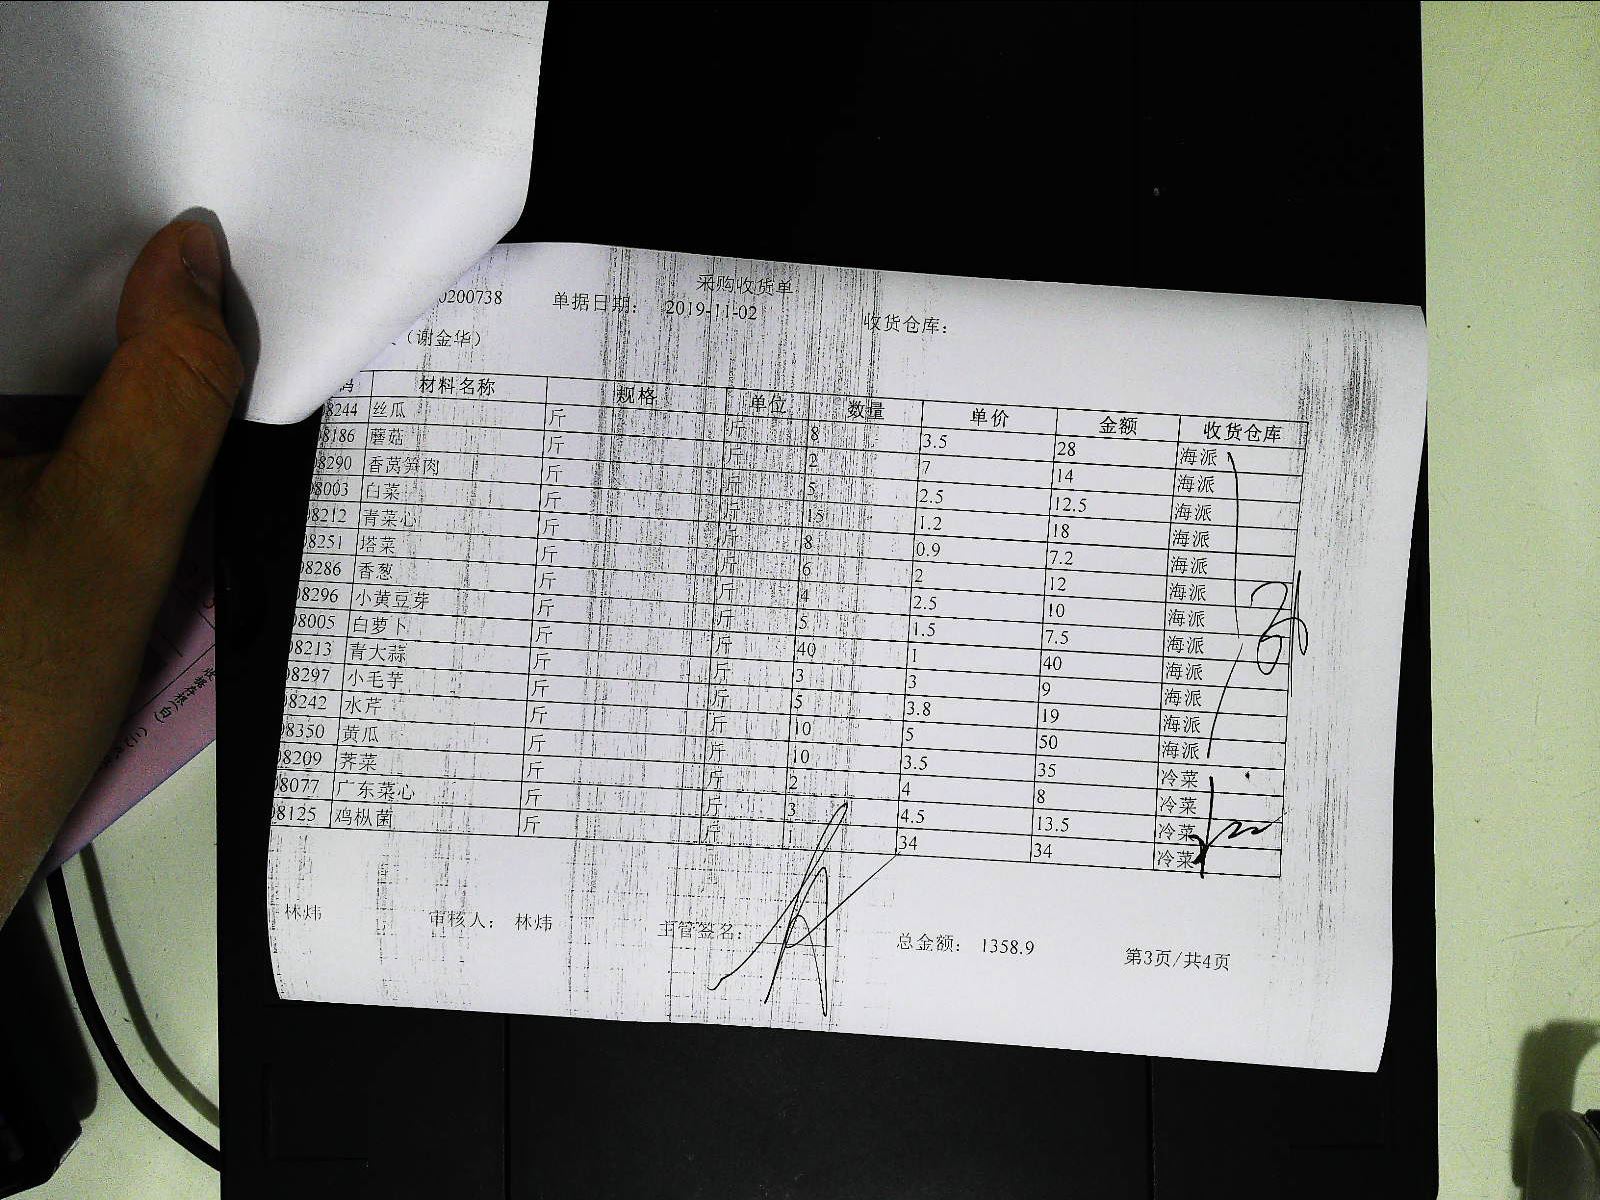 采购收货单
0200738 单据日期： 2019-11-02 收货仓库：
（谢金华）
码 材料名称 规格 单位 数量 单价 金额 收货仓库
8244 丝瓜 斤 斤 8 3.5 28 海派
8186 蘑菇 斤 斤 2 7 14 海派
08290 香莴笋肉 斤 斤 5 2.5 12.5 海派
08003 白菜 斤 斤 15 1.2 18 海派
08212 青菜心 斤 斤 8 0.9 7.2 海派
08251 塔菜 斤 斤 6 2 12 海派
08286 香葱 斤 斤 4 2.5 10 海派
08296 小黄豆芽 斤 斤 5 1.5 7.5 海派
08005 白萝卜 斤 斤 40 1 40 海派
08213 青大蒜 斤 斤 3 3 9 海派
08297 小毛芋 斤 斤 5 3.8 19 海派
08242 水芹 斤 斤 10 5 50 海派
08350 黄瓜 斤 斤 10 3.5 35 冷菜
08209 荠菜 斤 斤 2 4 8 冷菜
08077 广东菜心 斤 斤 3 4.5 13.5 冷菜
08125 鸡枞菌 斤 斤 1 34 34 冷菜
林炜 审核人： 林炜 主管签名： 总金额： 1358.9 第3页/共4页